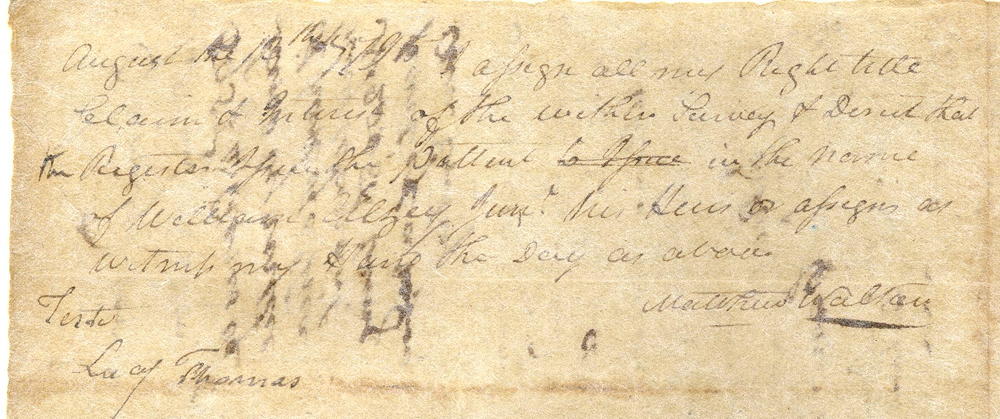 August the 13th 1795 I assign all my Right title
Claim & Interest of the within Survey & Desire that
the Register Issue the Pattent to Issue in the name
of William Elzey Junr. his Heirs or assigns as
witness my Hand the Day as above
Matthew Walton
Teste
Lucy Thomas